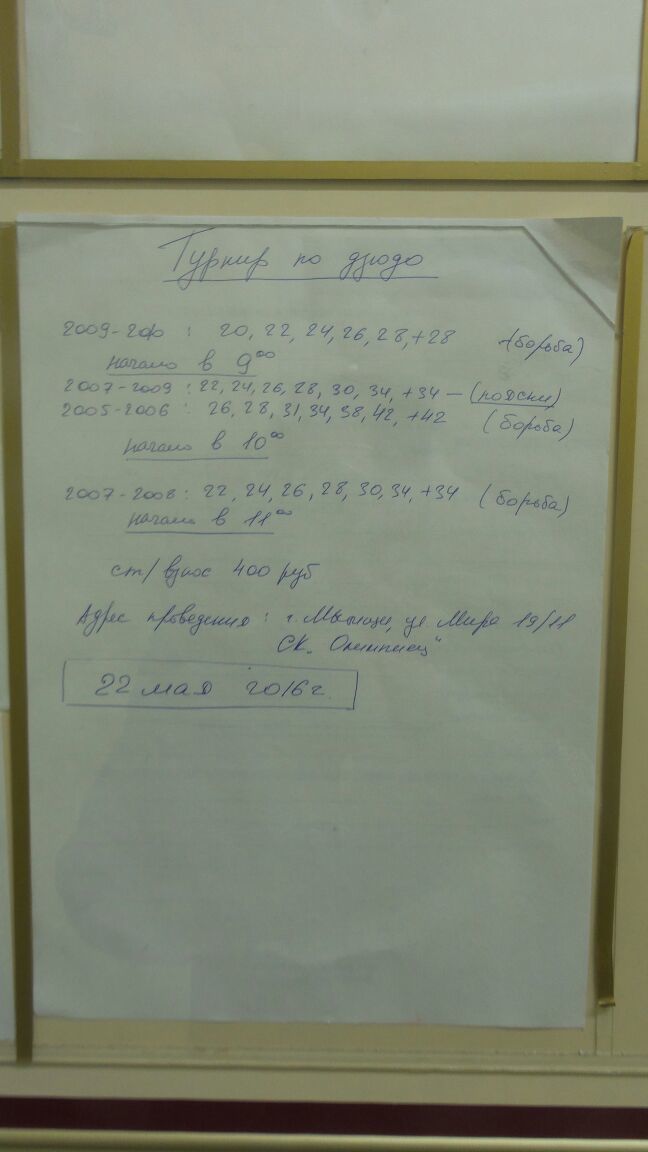 Турнир по дзюдо
2009-2010 : 20, 22, 24, 26, 28, +28 (борьба)
начало в 9⁰⁰
2007-2009 : 22, 24, 26, 28, 30, 34, +34 – (пояски)
2005-2006 : 26, 28, 31, 34, 38, 42, +42 (борьба)
начало в 10⁰⁰
2007-2008 : 22, 24, 26, 28, 30, 34, +34 (борьба)
начало в 11⁰⁰
ст/взнос 400 руб
Адрес проведения : г. Мытищи, ул. Мира 19/11
СК „Олимпиец"
22 мая 2016 г.